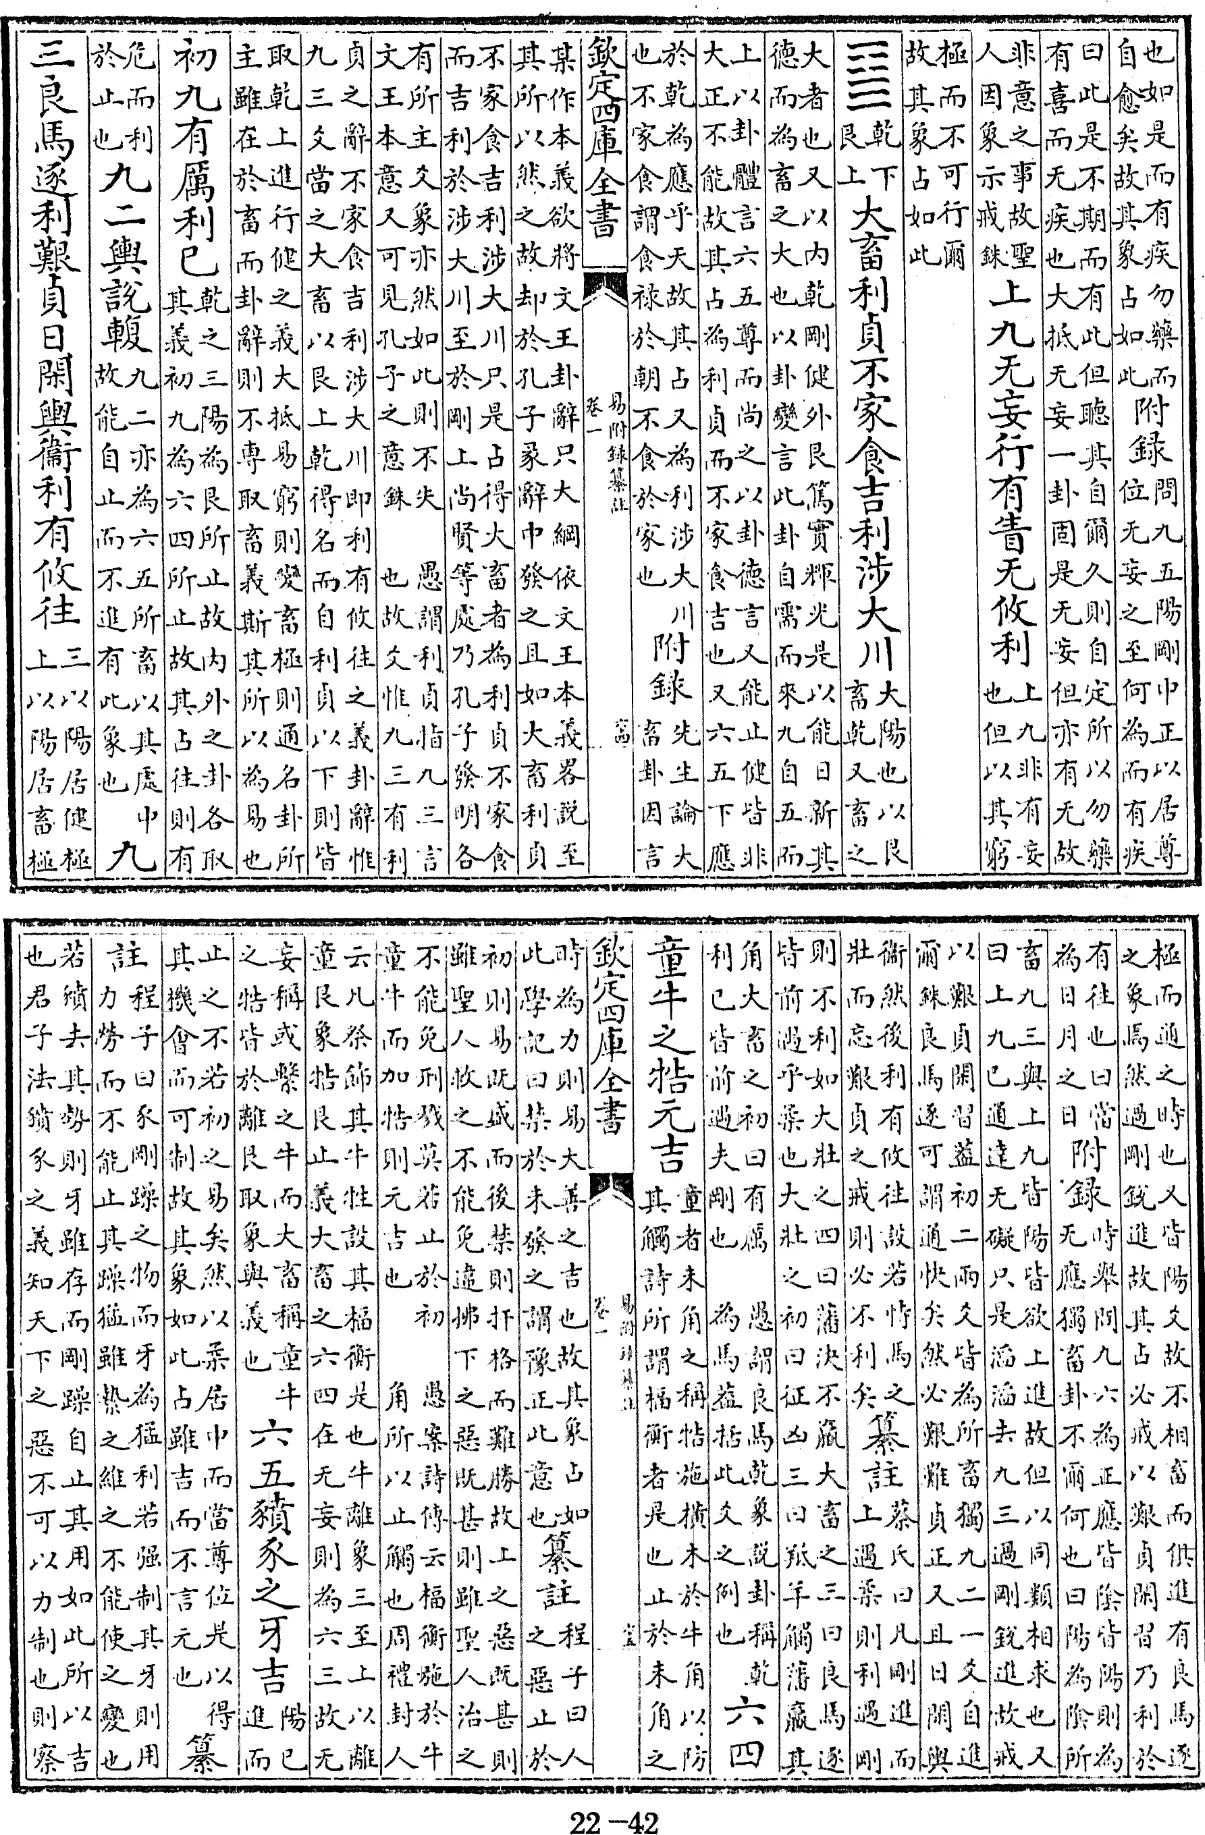 也如是而有疾勿藥而自愈矣故其象占如此附録問九五陽剛中正以居尊位无妄之至何為而有疾
曰此是不期而有此但聽其自爾久則自定所以勿藥有喜而无疾也大抵无妄一卦固是无妄但亦有无故
非意之事故聖人因象示戒銖上九无妄行有眚无攸利上九非有妄也但以其窮
極而不可行爾故其象占如此
䷙乾下艮上大畜利貞不家食吉利涉大川大陽也以艮畜乾又畜之
大者也又以内乾剛健外艮篤實輝光是以能日新其德而為畜之大也以卦變言此卦自需而來九自五而
上以卦體言六五尊而尚之以卦德言又能止健皆非大正不能故其占為利貞而不家食吉也又六五下應
於乾為應乎天故其占又為利涉大川也不家食謂食祿於朝不食於家也附録先生論大畜卦因言
欽定四庫全書
易附録纂註
卷一
某作本義欲將文王卦辭只大綱依文王本義畧說至其所以然之故却於孔子彖辭中發之且如大畜利貞
不家食吉利涉大川只是占得大畜者為利貞不家食而吉利於涉大川至於剛上尚賢等處乃孔子發明各
有所主爻象亦然如此則不失文王本意又可見孔子之意銖愚謂利貞指九三言也故爻惟九三有利
貞之辭不家食吉利涉大川即利有攸往之義卦辭惟九三爻當之大畜以艮上乾得名而自利貞以下則皆
取乾上進行健之義大抵易窮則變畜極則通名卦所主雖在於畜而卦辭則不専取畜義斯其所以為易也
初九有厲利已乾之三陽為艮所止故内外之卦各取其義初九為六四所止故其占往則有
危而利於止也九二輿說輹九二亦為六五所畜以其處中故能自止而不進有此象也九
三良馬逐利艱貞日閑輿衛利有攸往三以陽居健極上以陽居畜極
極而通之時也又皆陽爻故不相畜而俱進有良馬逐之象焉然過剛銳進故其占必戒以艱貞閑習乃利於
有往也曰當為日月之日附録時舉問九六為正應皆陰皆陽則為无應獨畜卦不爾何也曰陽為陰所
畜九三與上九皆陽皆欲上進故但以同類相求也又曰上九已通達无礙只是滔滔去九三過剛銳進故戒
以艱貞閑習蓋初二兩爻皆為所畜獨九二一爻自進爾銖良馬逐可謂通快矣然必艱難貞正又且日閑輿
衛然後利有攸往設若恃馬之壯而忘艱貞之戒則必不利矣纂註蔡氏曰凡剛進而上遇柔則利遇剛
則不利如大壯之四曰藩決不羸大畜之三曰良馬逐皆前遇乎柔也大壯之初曰征凶三曰羝羊觸藩羸其
角大畜之初曰有厲利已皆前遇夫剛也愚謂良馬乾象說卦稱乾為馬蓋括此爻之例也六四
童牛之牿元吉童者未角之稱牿施横木於牛角以防其觸詩所謂楅衡者是也止於未角之
欽定四庫全書
易附録纂註
卷一
時為力則易大善之吉也故其象占如此學記曰禁於未發之謂豫正此意也纂註程子曰人之惡止於
初則易既盛而後禁則扞格而難勝故上之惡既甚則雖聖人救之不能免違拂下之惡既甚則雖聖人治之
不能免刑戮莫若止於初童牛而加牿則元吉也愚案詩傳云楅衡施於牛角所以止觸也周禮封人
云凡祭飾其牛牲設其楅衡是也牛離象三至上以離童艮象牿艮止義大畜之六四在无妄則為六三故无
妄稱或繫之牛而大畜稱童牛之牿皆於離艮取象與義也六五豶豕之牙吉陽已進而
止之不若初之易矣然以柔居中而當尊位是以得其機會而可制故其象如此占雖吉而不言元也纂
註程子曰豕剛躁之物而牙為猛利若强制其牙則用力勞而不能止其躁猛雖縶之維之不能使之變也
若豶去其勢則牙雖存而剛躁自止其用如此所以吉也君子法豶豕之義知天下之惡不可以力制也則察
22-42